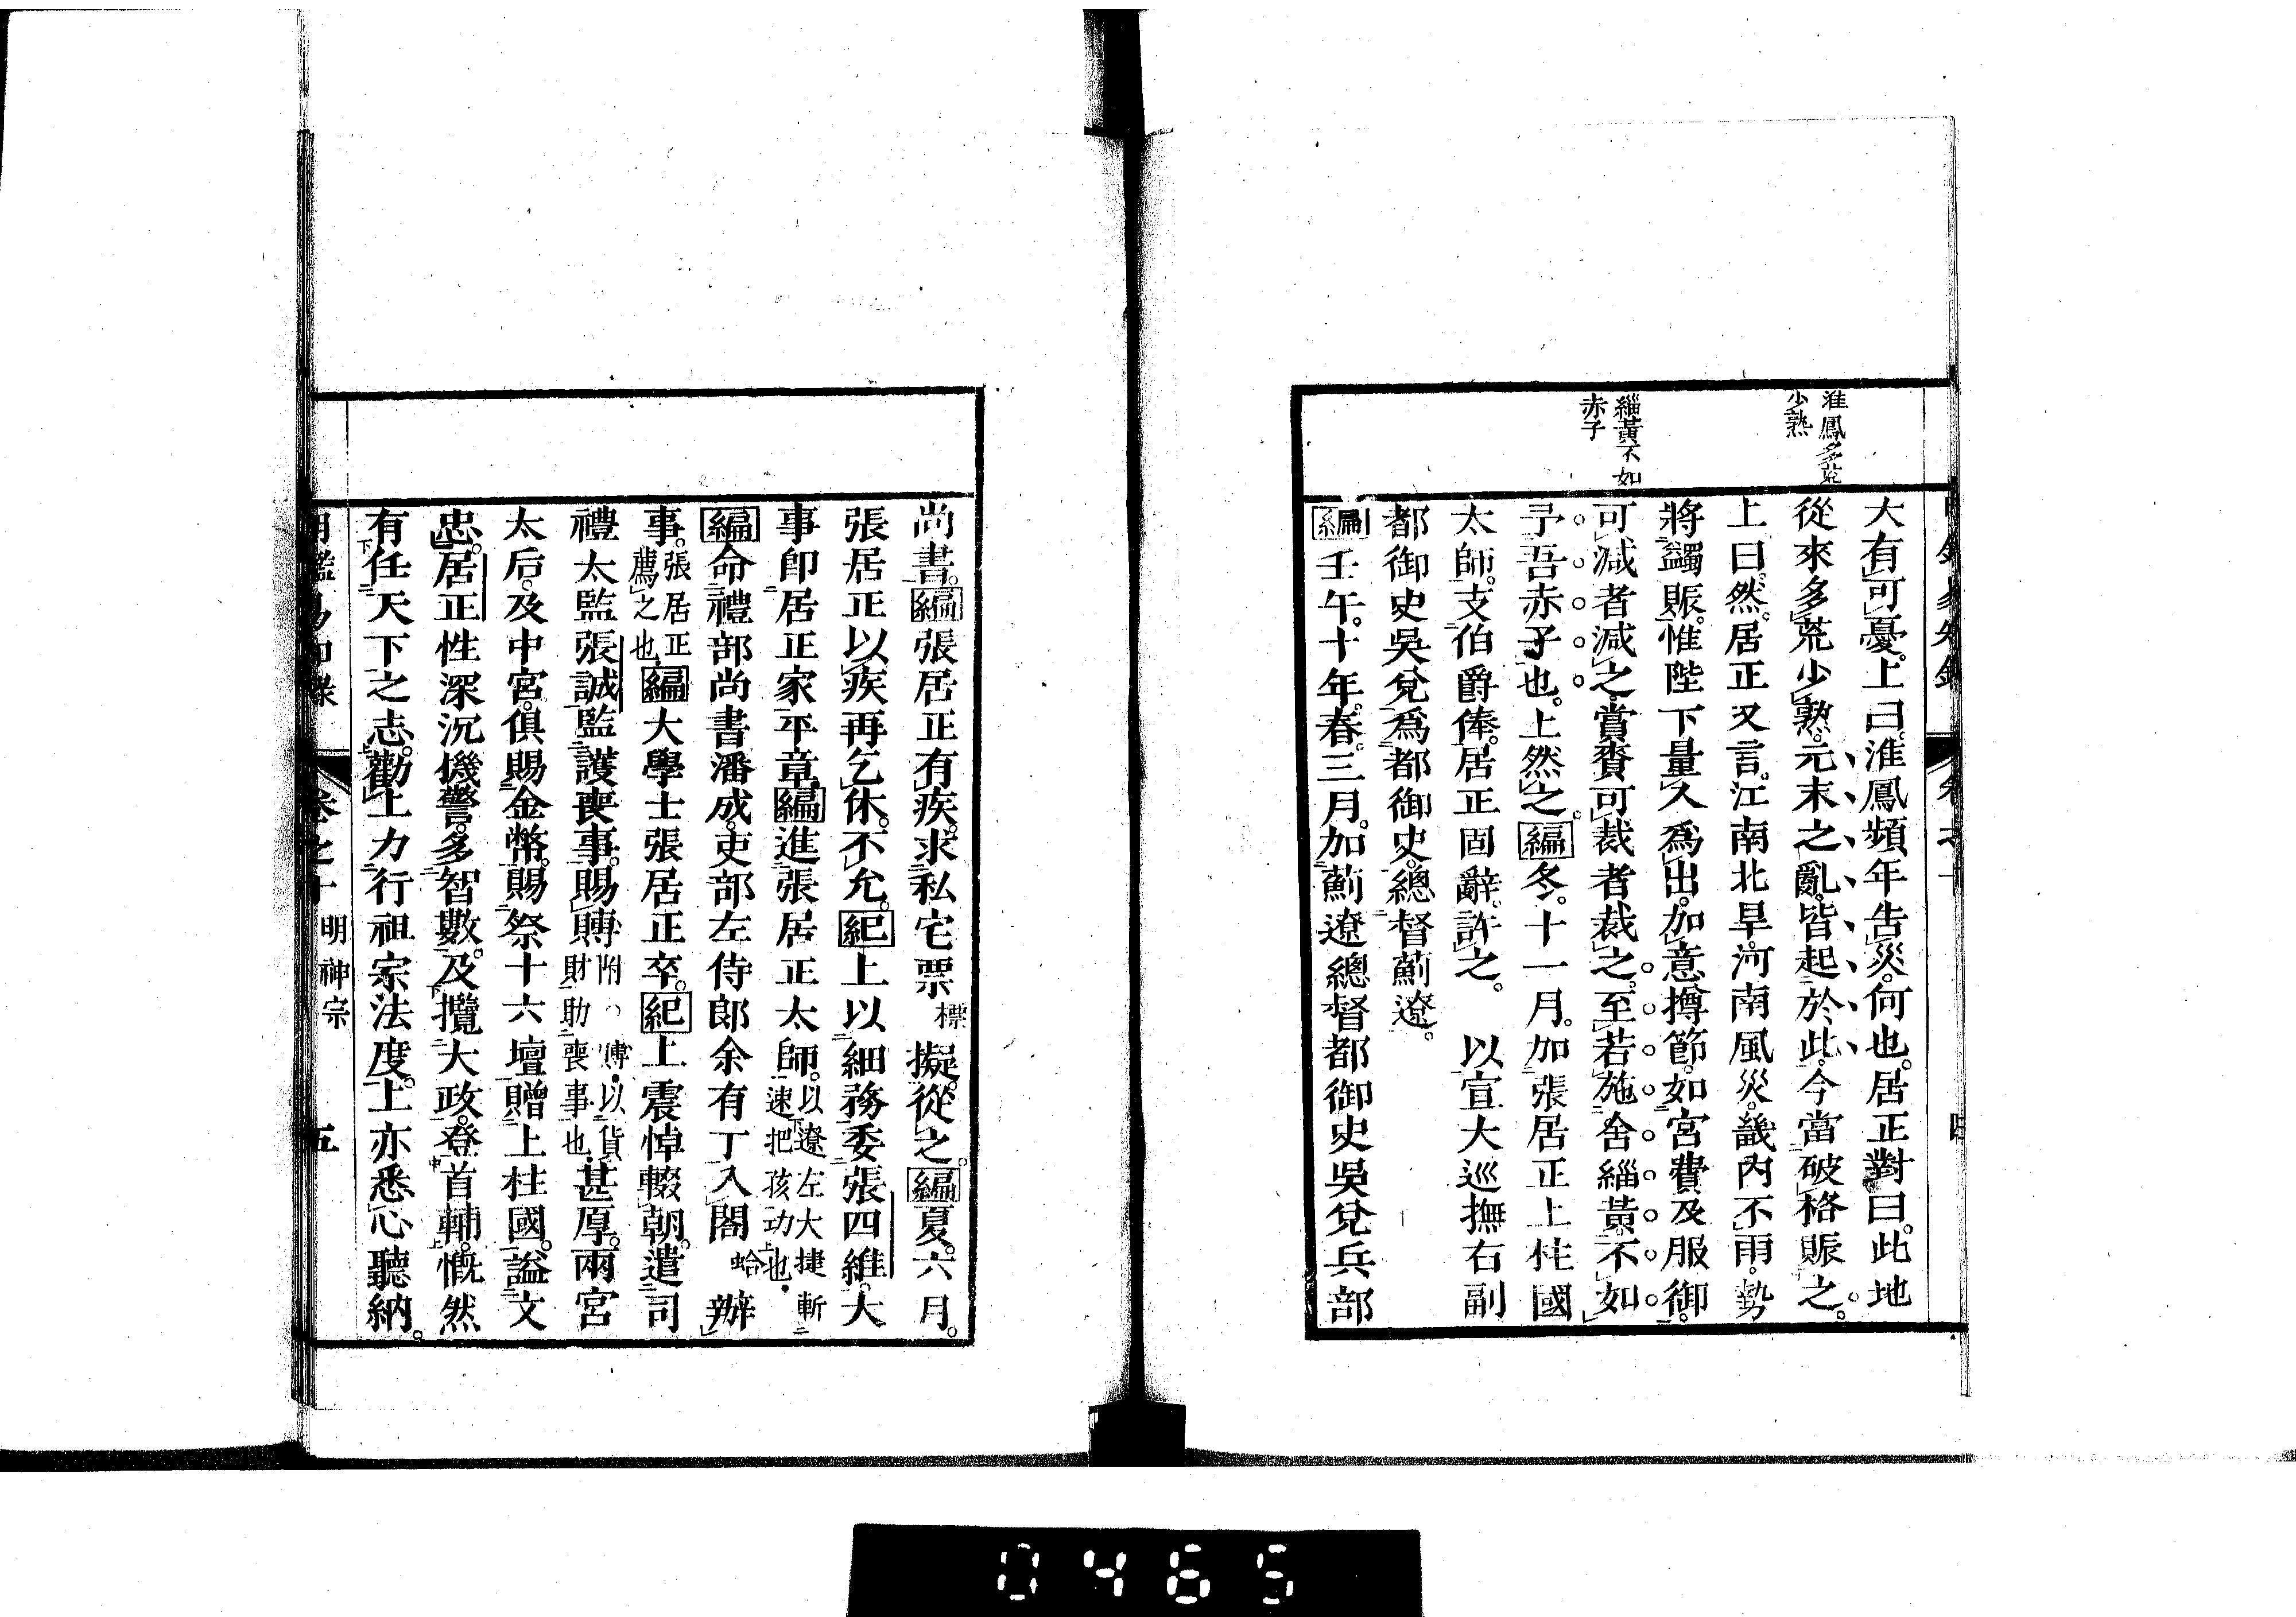 淮鳳多荒
少熟
緇黃不如
赤子
大有可憂。上曰。淮鳳頻年告災。何也。居正對曰。此地
從來多荒少熟。元末之亂。皆起於此。今當破格賑之。
上曰。然。居正又言。江南北旱。河南風災。畿內不雨。勢
將蠲賑。惟陛下量入爲出。加意撙節。如宮費及服御。
可減者減之。賞賚可裁者裁之。至若施舍緇黃。不如
予吾赤子也。上然之。編冬。十一月。加張居正上柱國
太師。支伯爵俸。居正固辭。許之。 以宣大巡撫右副
都御史吳兌爲都御史。總督薊遼。
編壬午。十年。春。三月。加薊遼總督都御史吳兌兵部
尚書。編張居正有疾。求私宅票標擬。從之。編夏。六月。
張居正以疾再乞休。不允。紀上以細務委張四維。大
事卽居正家平章。編進張居正太師。以遼左大捷斬
速把孩功也。
編命禮部尚書潘成。吏部左侍郎余有丁入閣蛤辦
事。張居正
薦之也編大學士張居正卒。紀上震悼輟朝。遣司
禮太監張誠監護喪事。賜賻附、賻。以貨
財助喪事也。甚厚。兩宮
太后。及中宮。俱賜金幣。賜祭十六壇。贈上柱國。謚文
忠。居正性深沉機警。多智數。及攬大政。登首輔。慨然
有任天下之志。勸上力行祖宗法度。上亦悉心聽納。
卷之十 明神宗 五
0465